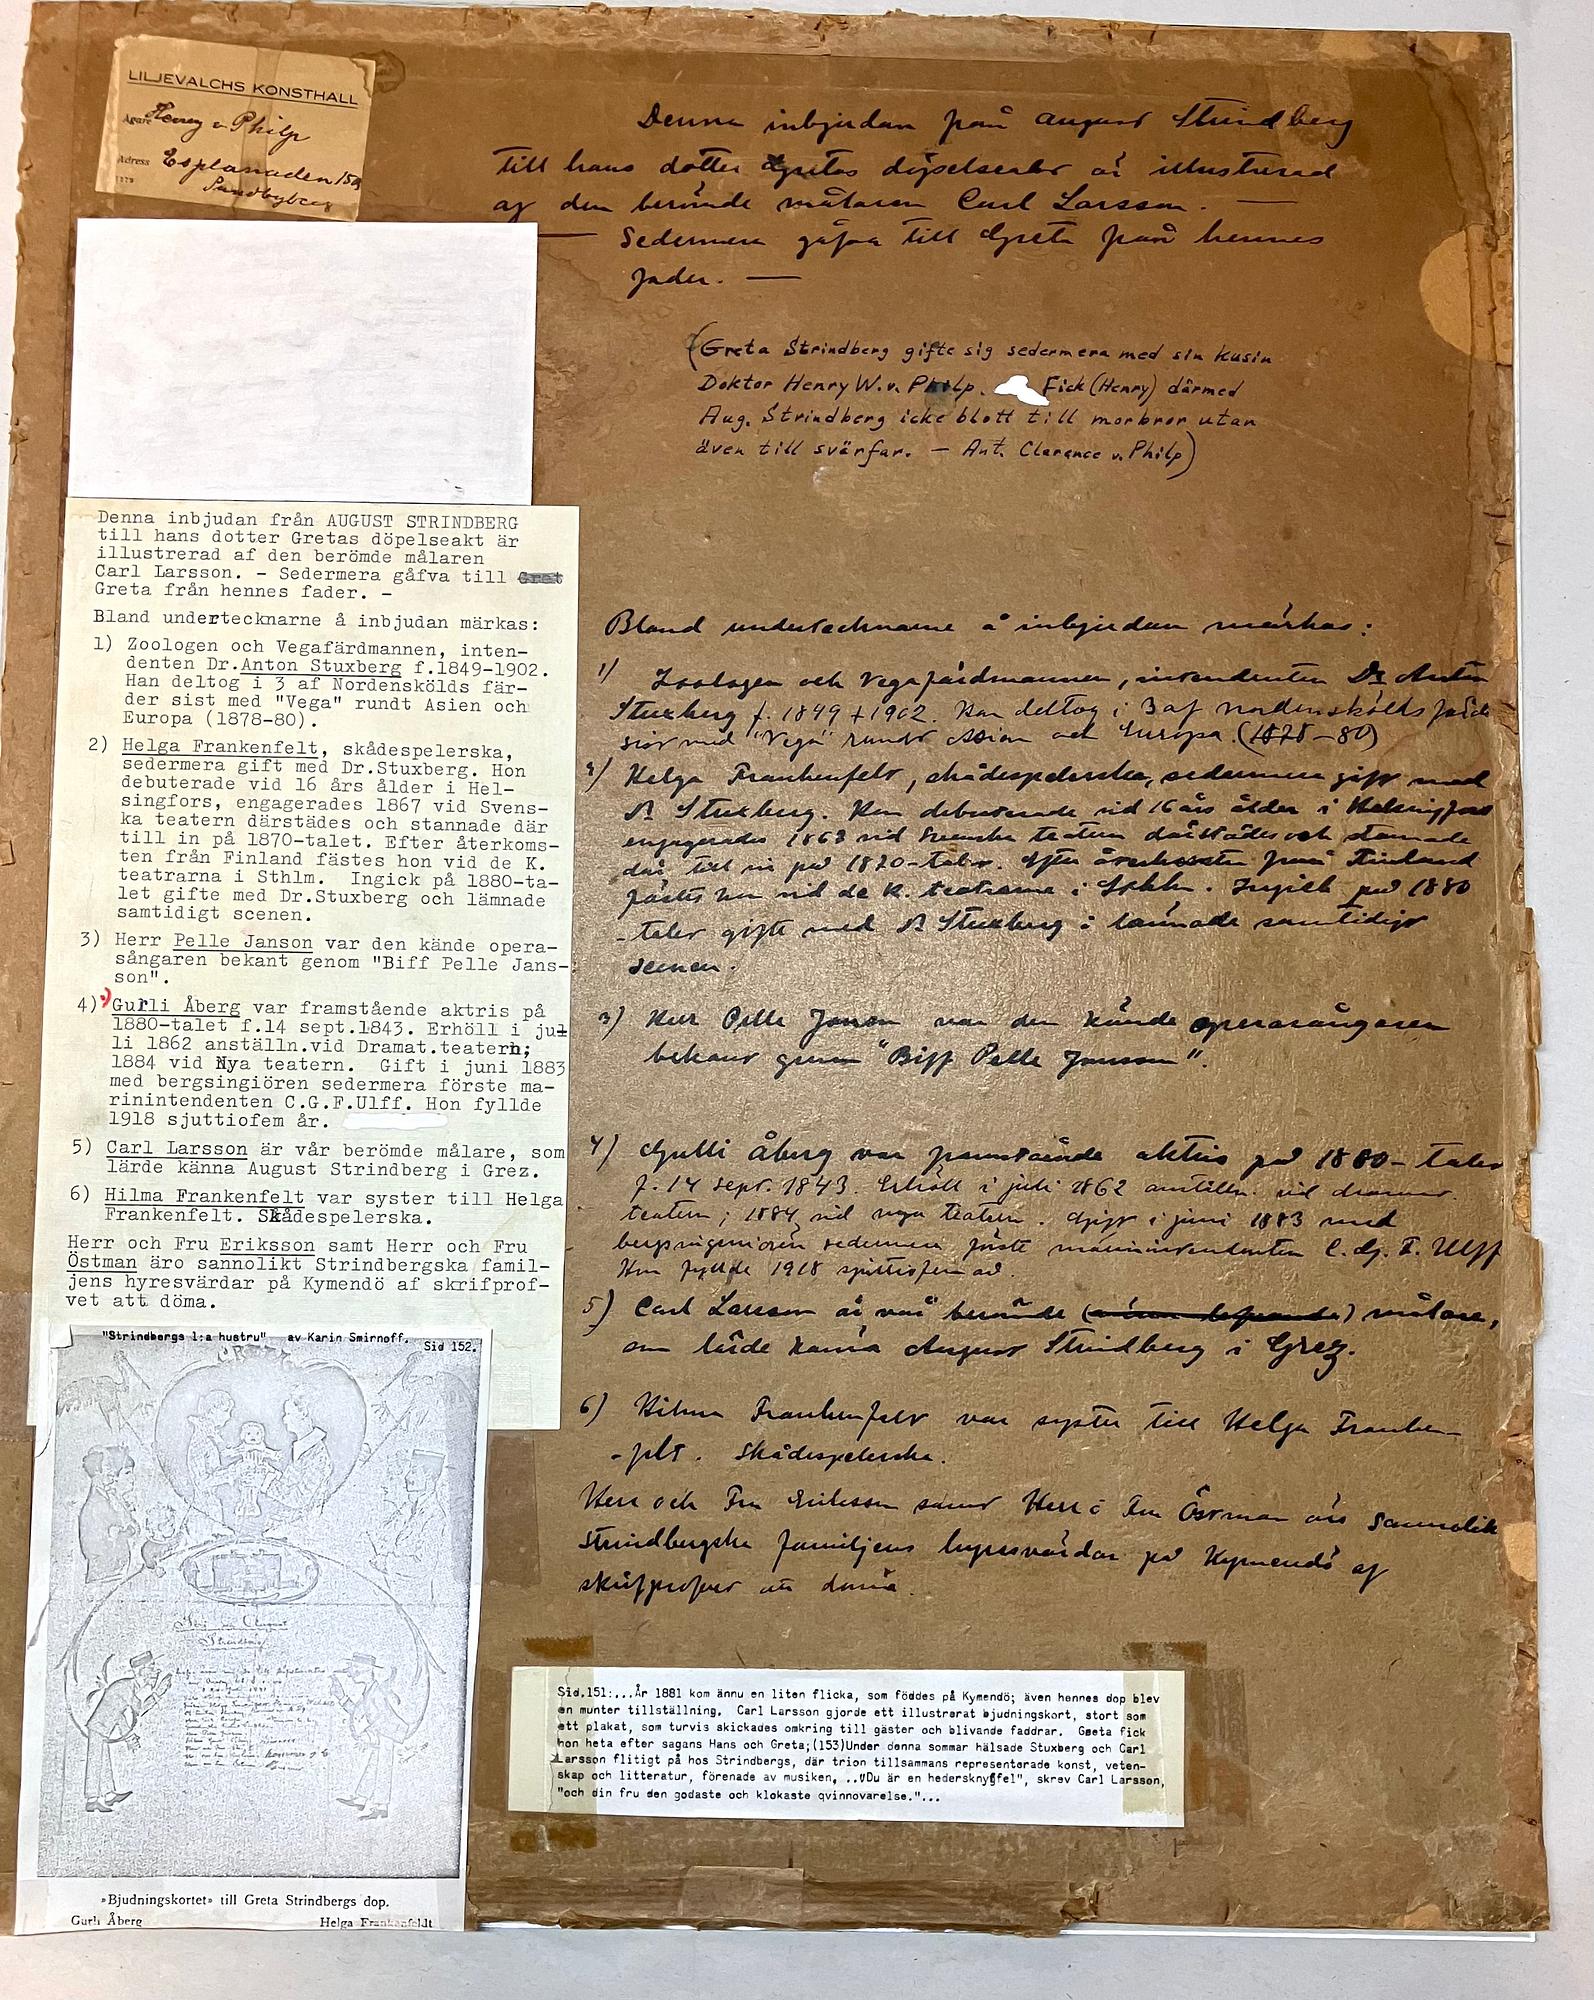 LILJEVALCHS KONSTHALL
Ägare Henry v Philp
Adress Esplanaden 15
Sundbyberg
Denna inbjudan från August Strindberg
till hans dotter Gretas döpelseakt är illustrerad
af den berömde målaren Carl Larsson. —
— Sedermera gåfva till Greta från hennes
fader. —
(Greta Strindberg gifte sig sedermera med sin kusin
Doktor Henry W. v. Philp. Fick (Henry) därmed
Aug. Strindberg icke blott till morbror utan
även till svärfar. — Ant. Clarence v. Philp)
Denna inbjudan från AUGUST STRINDBERG
till hans dotter Gretas döpelseakt är
illustrerad af den berömde målaren
Carl Larsson. - Sedermera gåfva till Gret
Greta från hennes fader. -
Bland undertecknarne å inbjudan märkas:
1) Zoologen och Vegafärdmannen, inten-
denten Dr.Anton Stuxberg f.1849-1902.
Han deltog i 3 af Nordenskölds fär-
der sist med "Vega" rundt Asien och
Europa (1878-80).
2) Helga Frankenfelt, skådespelerska,
sedermera gift med Dr.Stuxberg. Hon
debuterade vid 16 års ålder i Hel-
singfors, engagerades 1867 vid Svens-
ka teatern därstädes och stannade där
till in på 1870-talet. Efter återkoms-
ten från Finland fästes hon vid de K.
teatrarna i Sthlm. Ingick på 1880-ta-
let gifte med Dr.Stuxberg och lämnade
samtidigt scenen.
3) Herr Pelle Janson var den kände opera-
sångaren bekant genom "Biff Pelle Jans-
son".
4) Gurli Åberg var framstående aktris på
1880-talet f.14 sept.1843. Erhöll i ju
li 1862 anställn.vid Dramat.teatern;
1884 vid Nya teatern. Gift i juni 1883
med bergsingiören sedermera förste ma-
rinintendenten C.G.F.Ulff. Hon fyllde
1918 sjuttiofem år.
5) Carl Larsson är vår berömde målare, som
lärde känna August Strindberg i Grez.
6) Hilma Frankenfelt var syster till Helga
Frankenfelt. Skådespelerska.
Herr och Fru Eriksson samt Herr och Fru
Östman äro sannolikt Strindbergska famil-
jens hyresvärdar på Kymendö af skrifprof-
vet att döma.
Bland undertecknarne å inbjudan märkas:
1) Zoologen och Vegafärdmannen, intendenten Dr Anton
Stuxberg f. 1849 + 1902. Han deltog i 3 af Nordenskölds färder
sist med "Vega" rundt Asien och Europa. (1878-80)
2) Helga Frankenfelt, skådespelerska, sedermera gift med
Dr Stuxberg. Hon debuterade vid 16 års ålder i Helsingfors
engagerades 1863 vid Svenska teatern därstädes och stannade
där till in på 1870-talet. Efter återkomsten från Finland
fästes hon vid de K. teatrarne i Sthlm. Ingick på 1880
-talet gifte med Dr Stuxberg & lämnade samtidigt
scenen.
3) Herr Pelle Janson var den kände operasångaren
bekant genom "Biff Pelle Jansson".
4) Gurli Åberg var framstående aktris på 1880-talet
f. 14 sept. 1843. Erhöll i juli 1862 anställn. vid dramat.
teatern; 1884 vid nya teatern. Gift i juni 1883 med
bergsingeniören sedermera förste marinintendenten C. G. F. Ulff
Hon fyllde 1918 sjuttiofem år.
5) Carl Larsson är vår berömde målare,
som lärde känna August Strindberg i Grez.
6) Hilma Frankenfelt var syster till Helga Franken-
-felt. Skådespelerska.
Herr och Fru Eriksson samt Herr o Fru Östman äro sannolikt
Strindbergska familjens hyresvärdar på Kymendö af
skrifprofvet att döma.
"Strindbergs 1:a hustru" av Karin Smirnoff.
Sid 152.
GRETA
August
Strindberg
»Bjudningskortet» till Greta Strindbergs dop.
Gurli Åberg Helga Frankenfeldt
Sid.151:...År 1881 kom ännu en liten flicka, som föddes på Kymendö; även hennes dop blev
en munter tillställning. Carl Larsson gjorde ett illustrerat bjudningskort, stort som
ett plakat, som turvis skickades omkring till gäster och blivande faddrar. Greta fick
hon heta efter sagans Hans och Greta;(153)Under denna sommar hälsade Stuxberg och Carl
Larsson flitigt på hos Strindbergs, där trion tillsammans representerade konst, veten-
skap och litteratur, förenade av musiken, .."Du är en hedersknyffel", skrev Carl Larsson,
"och din fru den godaste och klokaste qvinnovarelse."...